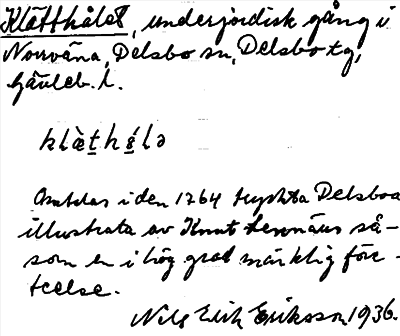 Klätthålet, underjordisk gång i
Norrväna, Delsbo sn, Delsbo tg,
Gävleb. l.
klæ̀t̠hǻlə
Omtalas i den 1764 tryckta Delsboa
illustrata av Knut Lenæus så-
som en i hög grad märklig före-
teelse.
Nils Erik Eriksson, 1936.